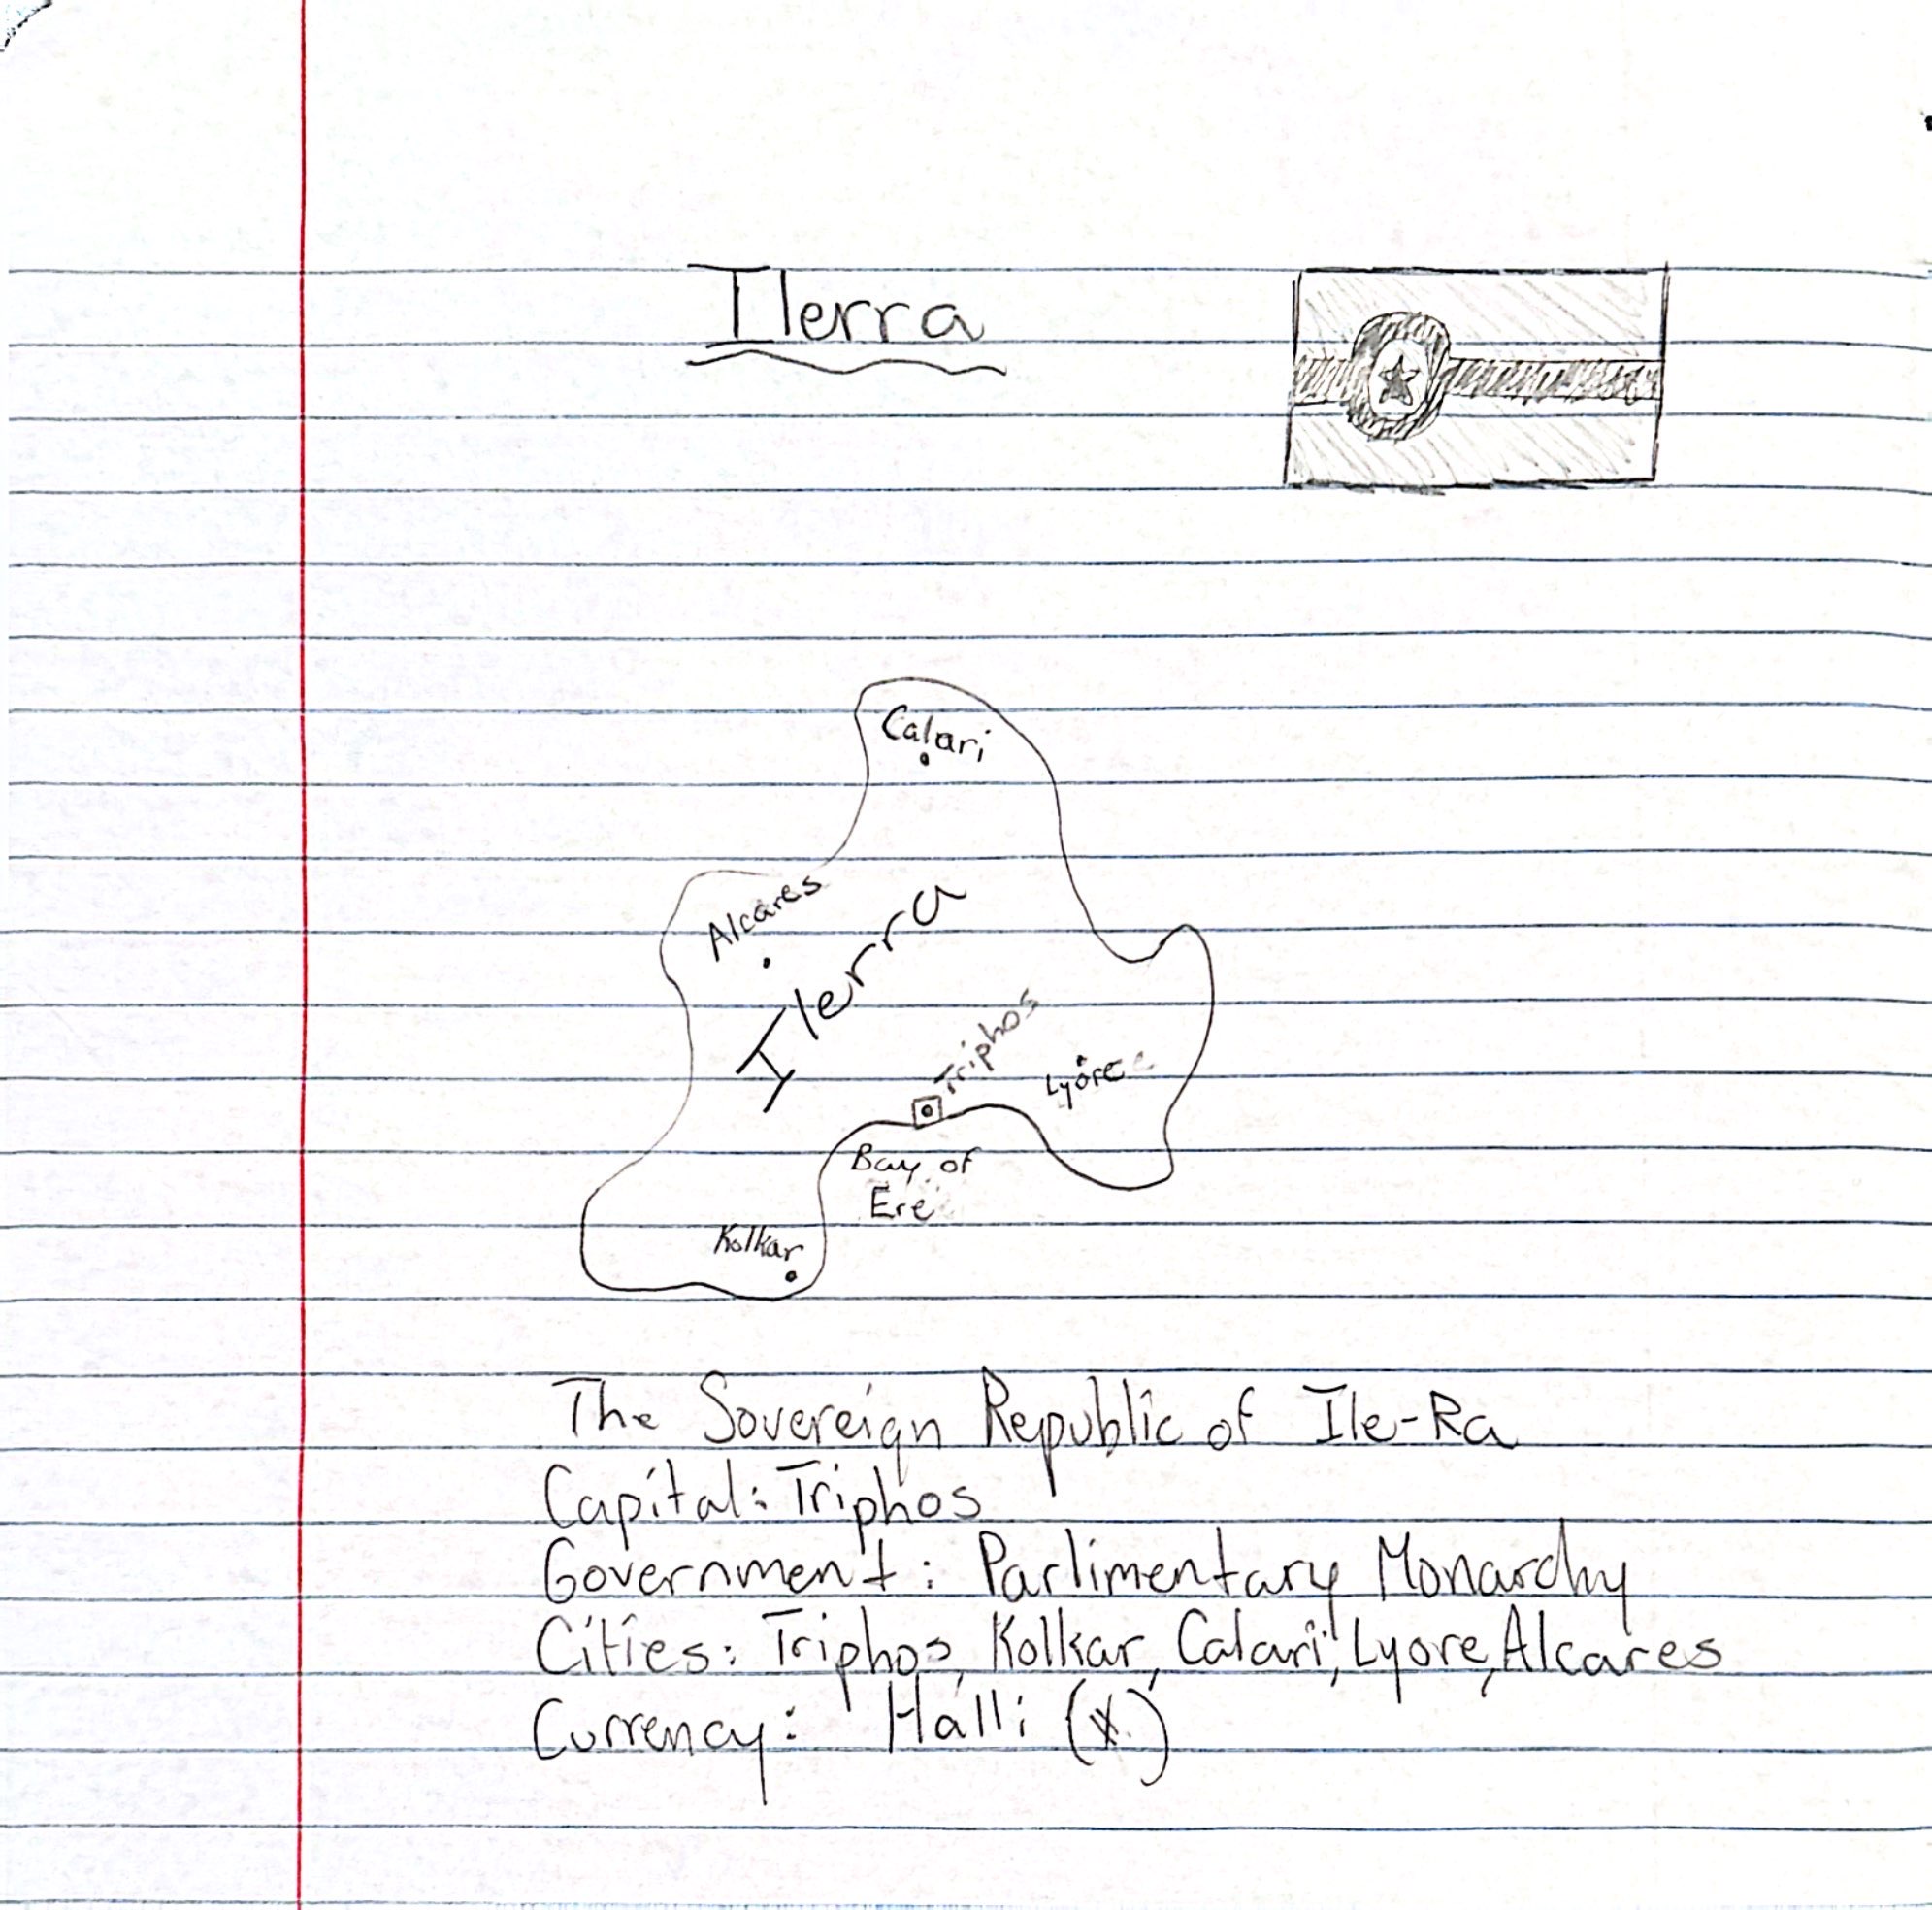 Ilerra
Calari
Alcares
Ilerra
Triphos
Lyore
Bay of
Ere
Kolkar
The Sovereign Republic of Ile-Ra
Capital: Triphos
Government: Parlimentary Monarchy
Cities: Triphos, Kolkar, Calari, Lyore, Alcares
Currency: Halli